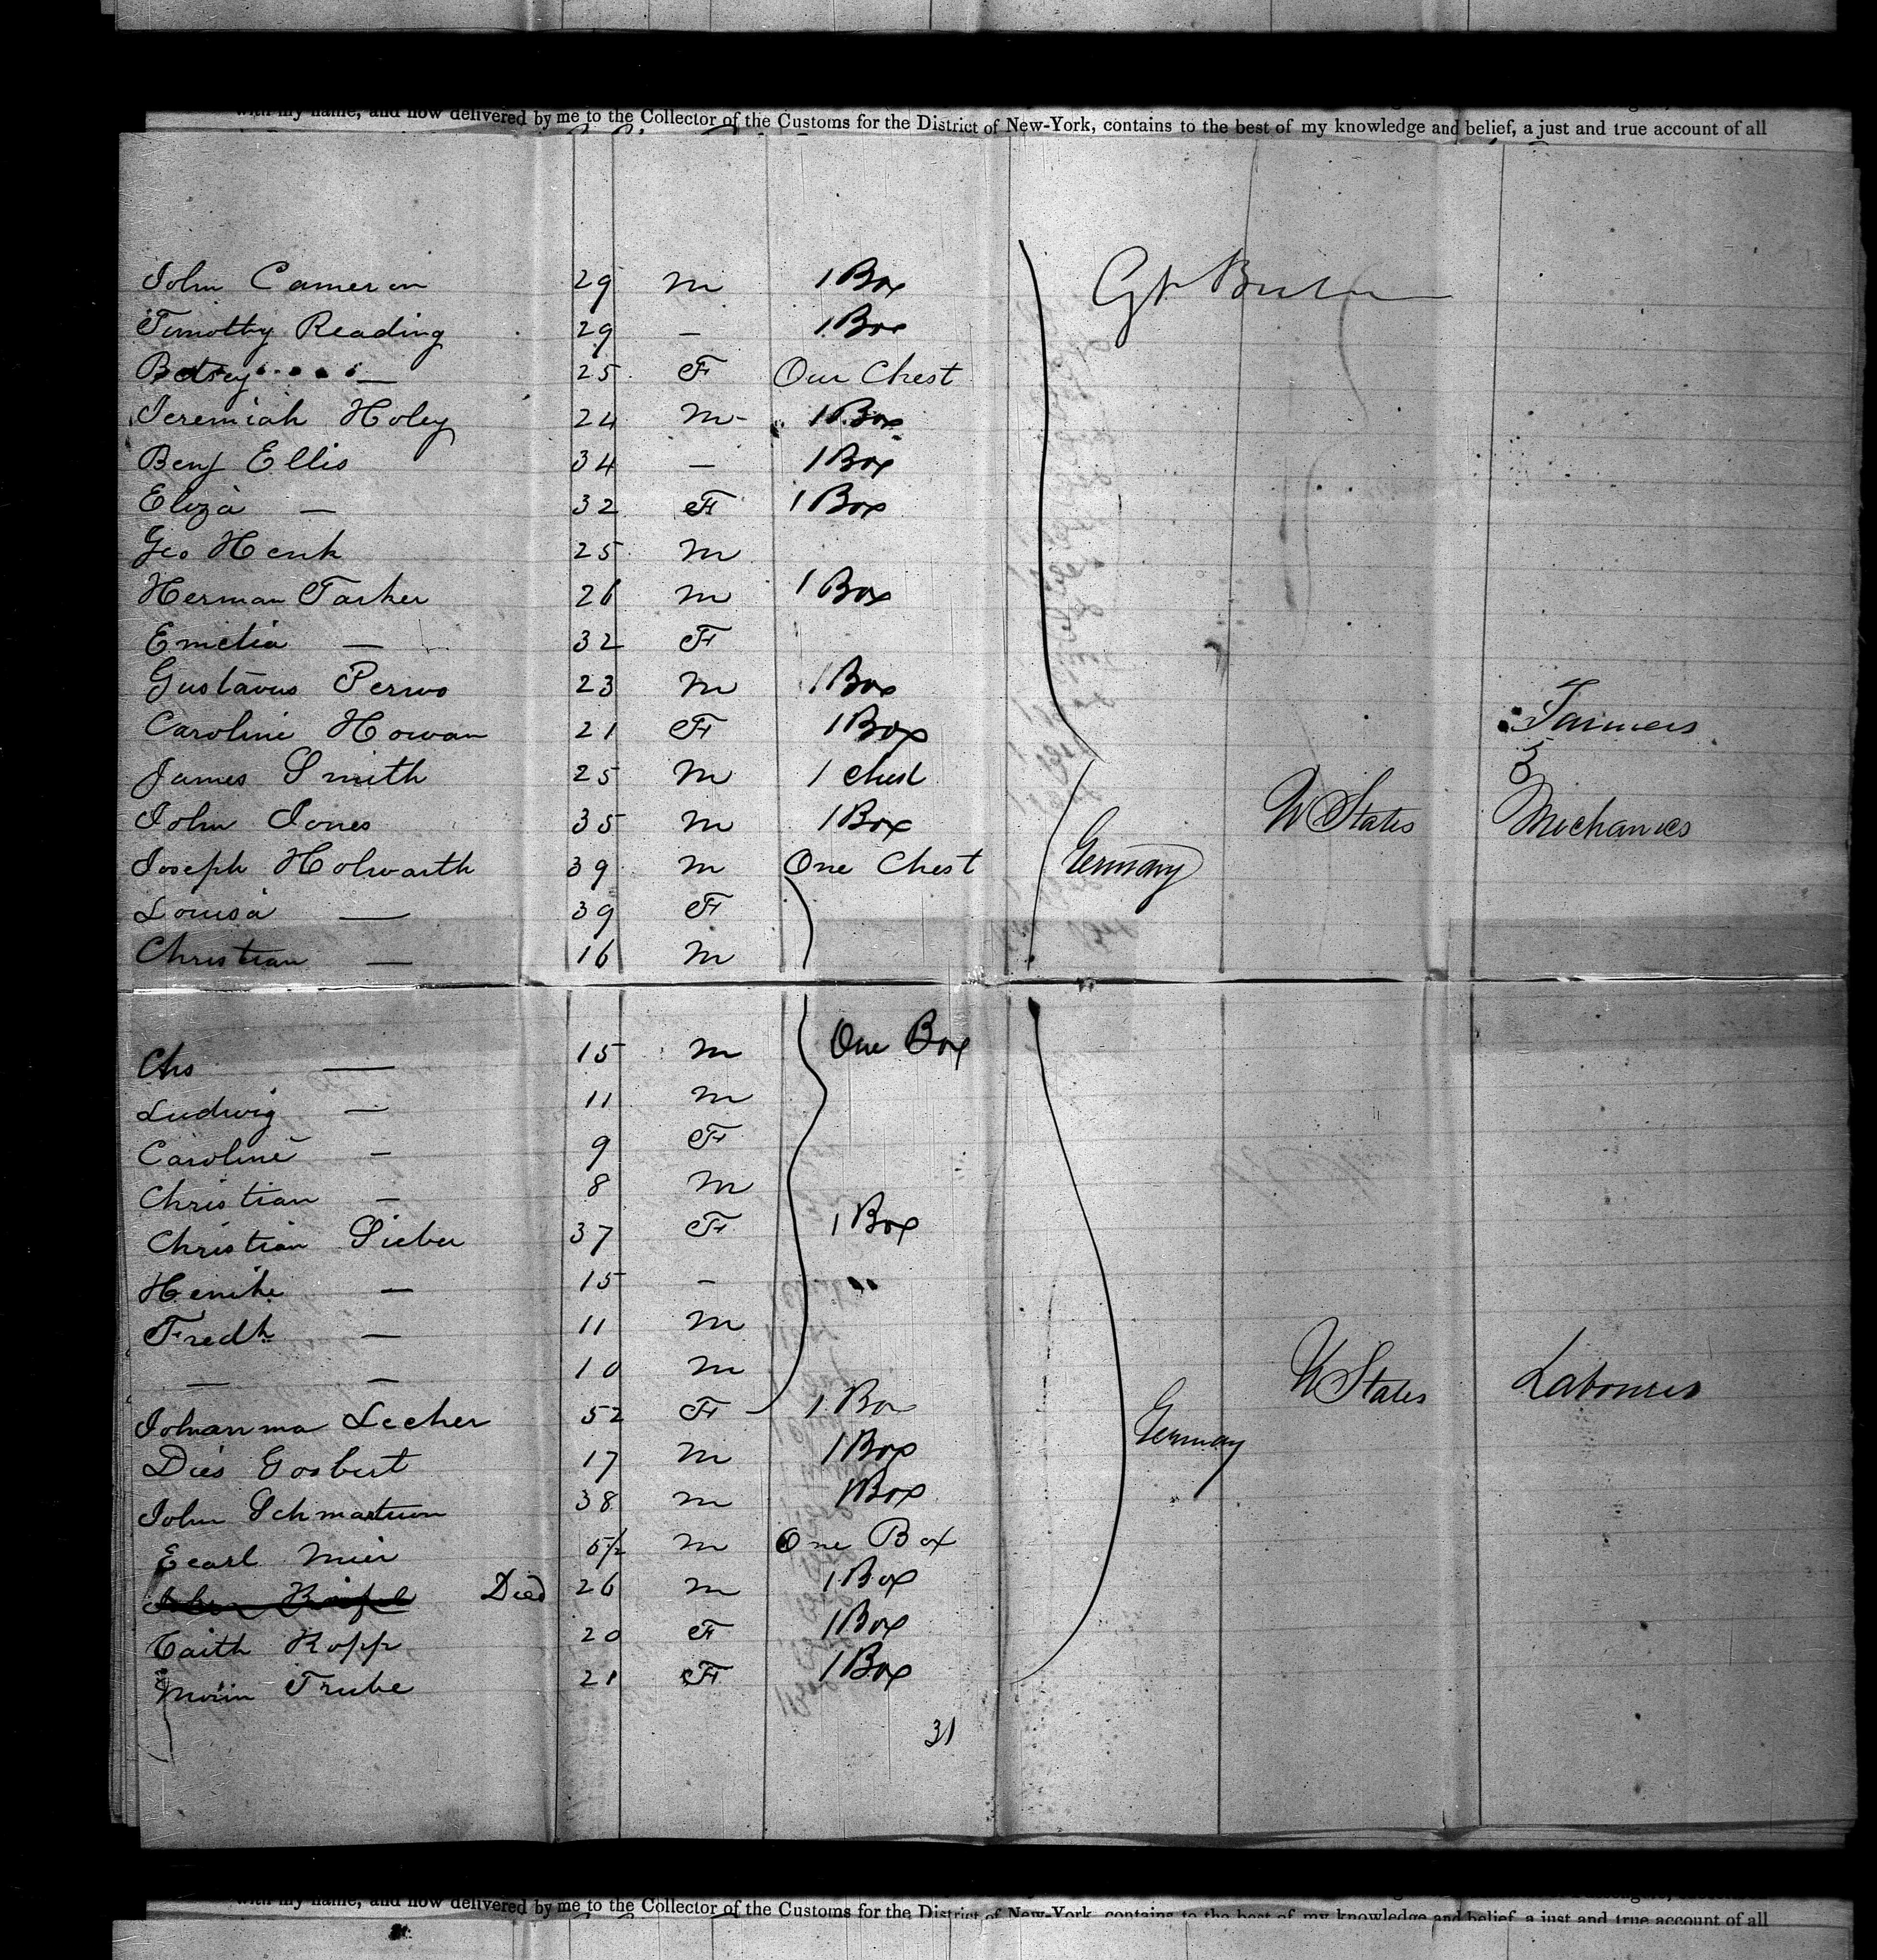 with my name, and now delivered by me to the Collector of the Customs for the District of New-York, contains to the best of my knowledge and belief, a just and true account of all
John Cameron 29 m 1 Box Gt
Timothy Reading 29 — 1 Box
Betsey — 25 F One Chest
Jeremiah Holey 24 m 1 Box
Benj Ellis 34 — 1 Box
Eliza — 32 F 1 Box
Geo Henk 25 m
Herman Tarker 26 m 1 Box
Emelia — 32 F
Gustavus 23 m 1 Box
Caroline Howan 21 F 1 Box Farmers
James Smith 25 m 1 Chest &
John Jones 35 m 1 Box U States Mechanics
Joseph Holwarth 39 m One Chest Germany
Louisa — 39 F
Christian — 16 m
Chs — 15 m One Box
Ludwig — 11 m
Caroline — 9 F
Christian — 8 m
Christian Sieber 37 F 1 Box
15 - "
Fredk — 11 m
— — 10 m U States Labourers
Johanna Lecher 52 F 1 Box
Dies Gosbert 17 m 1 Box Germany
John 38 m 1 Box
Ecarl Mier m One Box
Died 26 m 1 Box
Caith Kopp 20 F 1 Box
Trube 21 F 1 Box
31
with my name, and now delivered by me to the Collector of the Customs for the District of New-York, contains to the best of my knowledge and belief, a just and true account of all